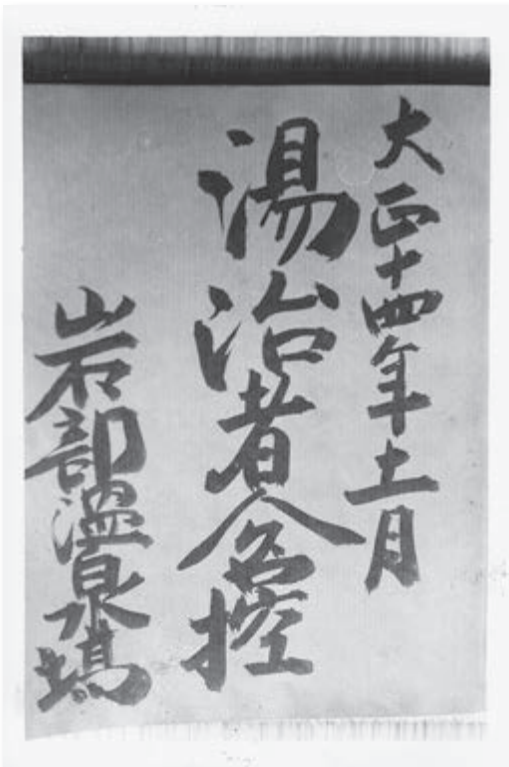 大正十四年十一月
湯治者人名控
岩部温泉場